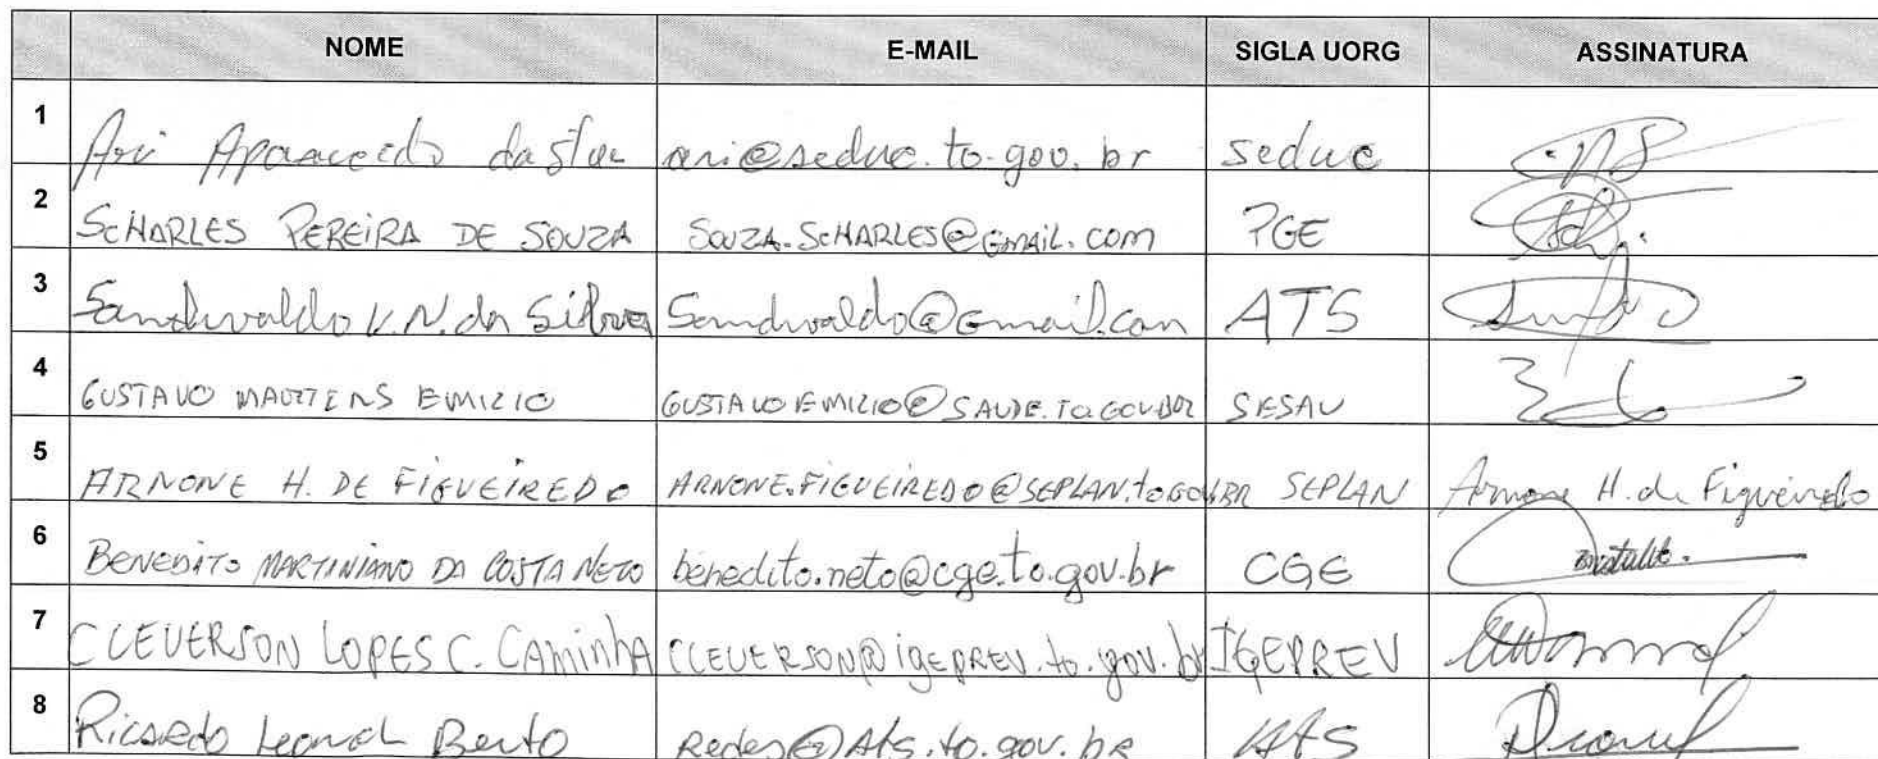 NOME E-MAIL SIGLA UORG ASSINATURA
1 Ari Aparecido da Silva ari@seduc.to.gov.br seduc
2 SCHARLES PEREIRA DE SOUZA SOUZA.SCHARLES@GMAIL.COM PGE
3 Sandivaldo V.N. da Silva Sandivaldo@Gmail.com ATS
4 GUSTAVO EMIZIO GUSTAVOEMIZIO@SAUDE.TO.GOV.BR SESAU
5 ARNONE H. DE FIGUEIREDO ARNONE.FIGUEIREDO@SEPLAN.TO.GOV.BR SEPLAN Arnone H. de Figueiredo
6 BENEDITO MARTINIANO DA COSTA NETO benedito.neto@cge.to.gov.br CGE
7 CLEUERSON LOPES C. CAMINHA CLEUERSON@IGEPREV.to.gov.br IGEPREV
8 Ricardo Leonel Bento Redes@Ats.to.gov.br Ats